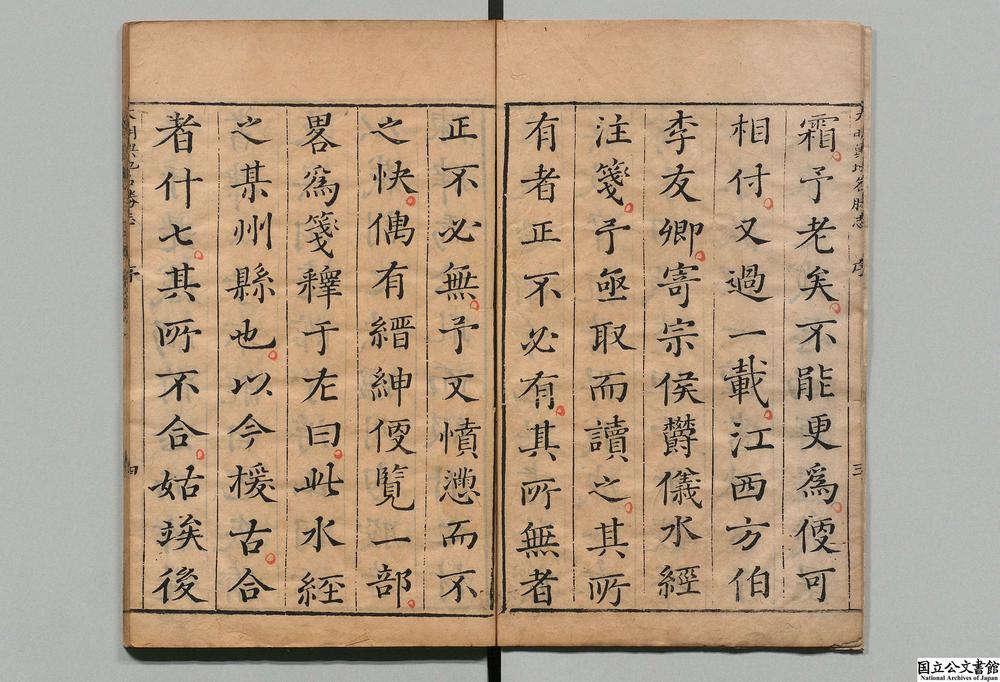 大明輿地名勝志 序 三
霜予老矣不能更爲便可
相付又過一載江西方伯
李友卿寄宗侯欝儀水經
注箋予亟取而讀之其所
有者正不必有其所無者
正不必無予又憤懣而不
之快偶有縉紳便覽一部
畧爲箋釋于左曰此水經
之某州縣也以今援古合
者什七其所不合姑竢後
序 四
国立公文書館
National Archives of Japan